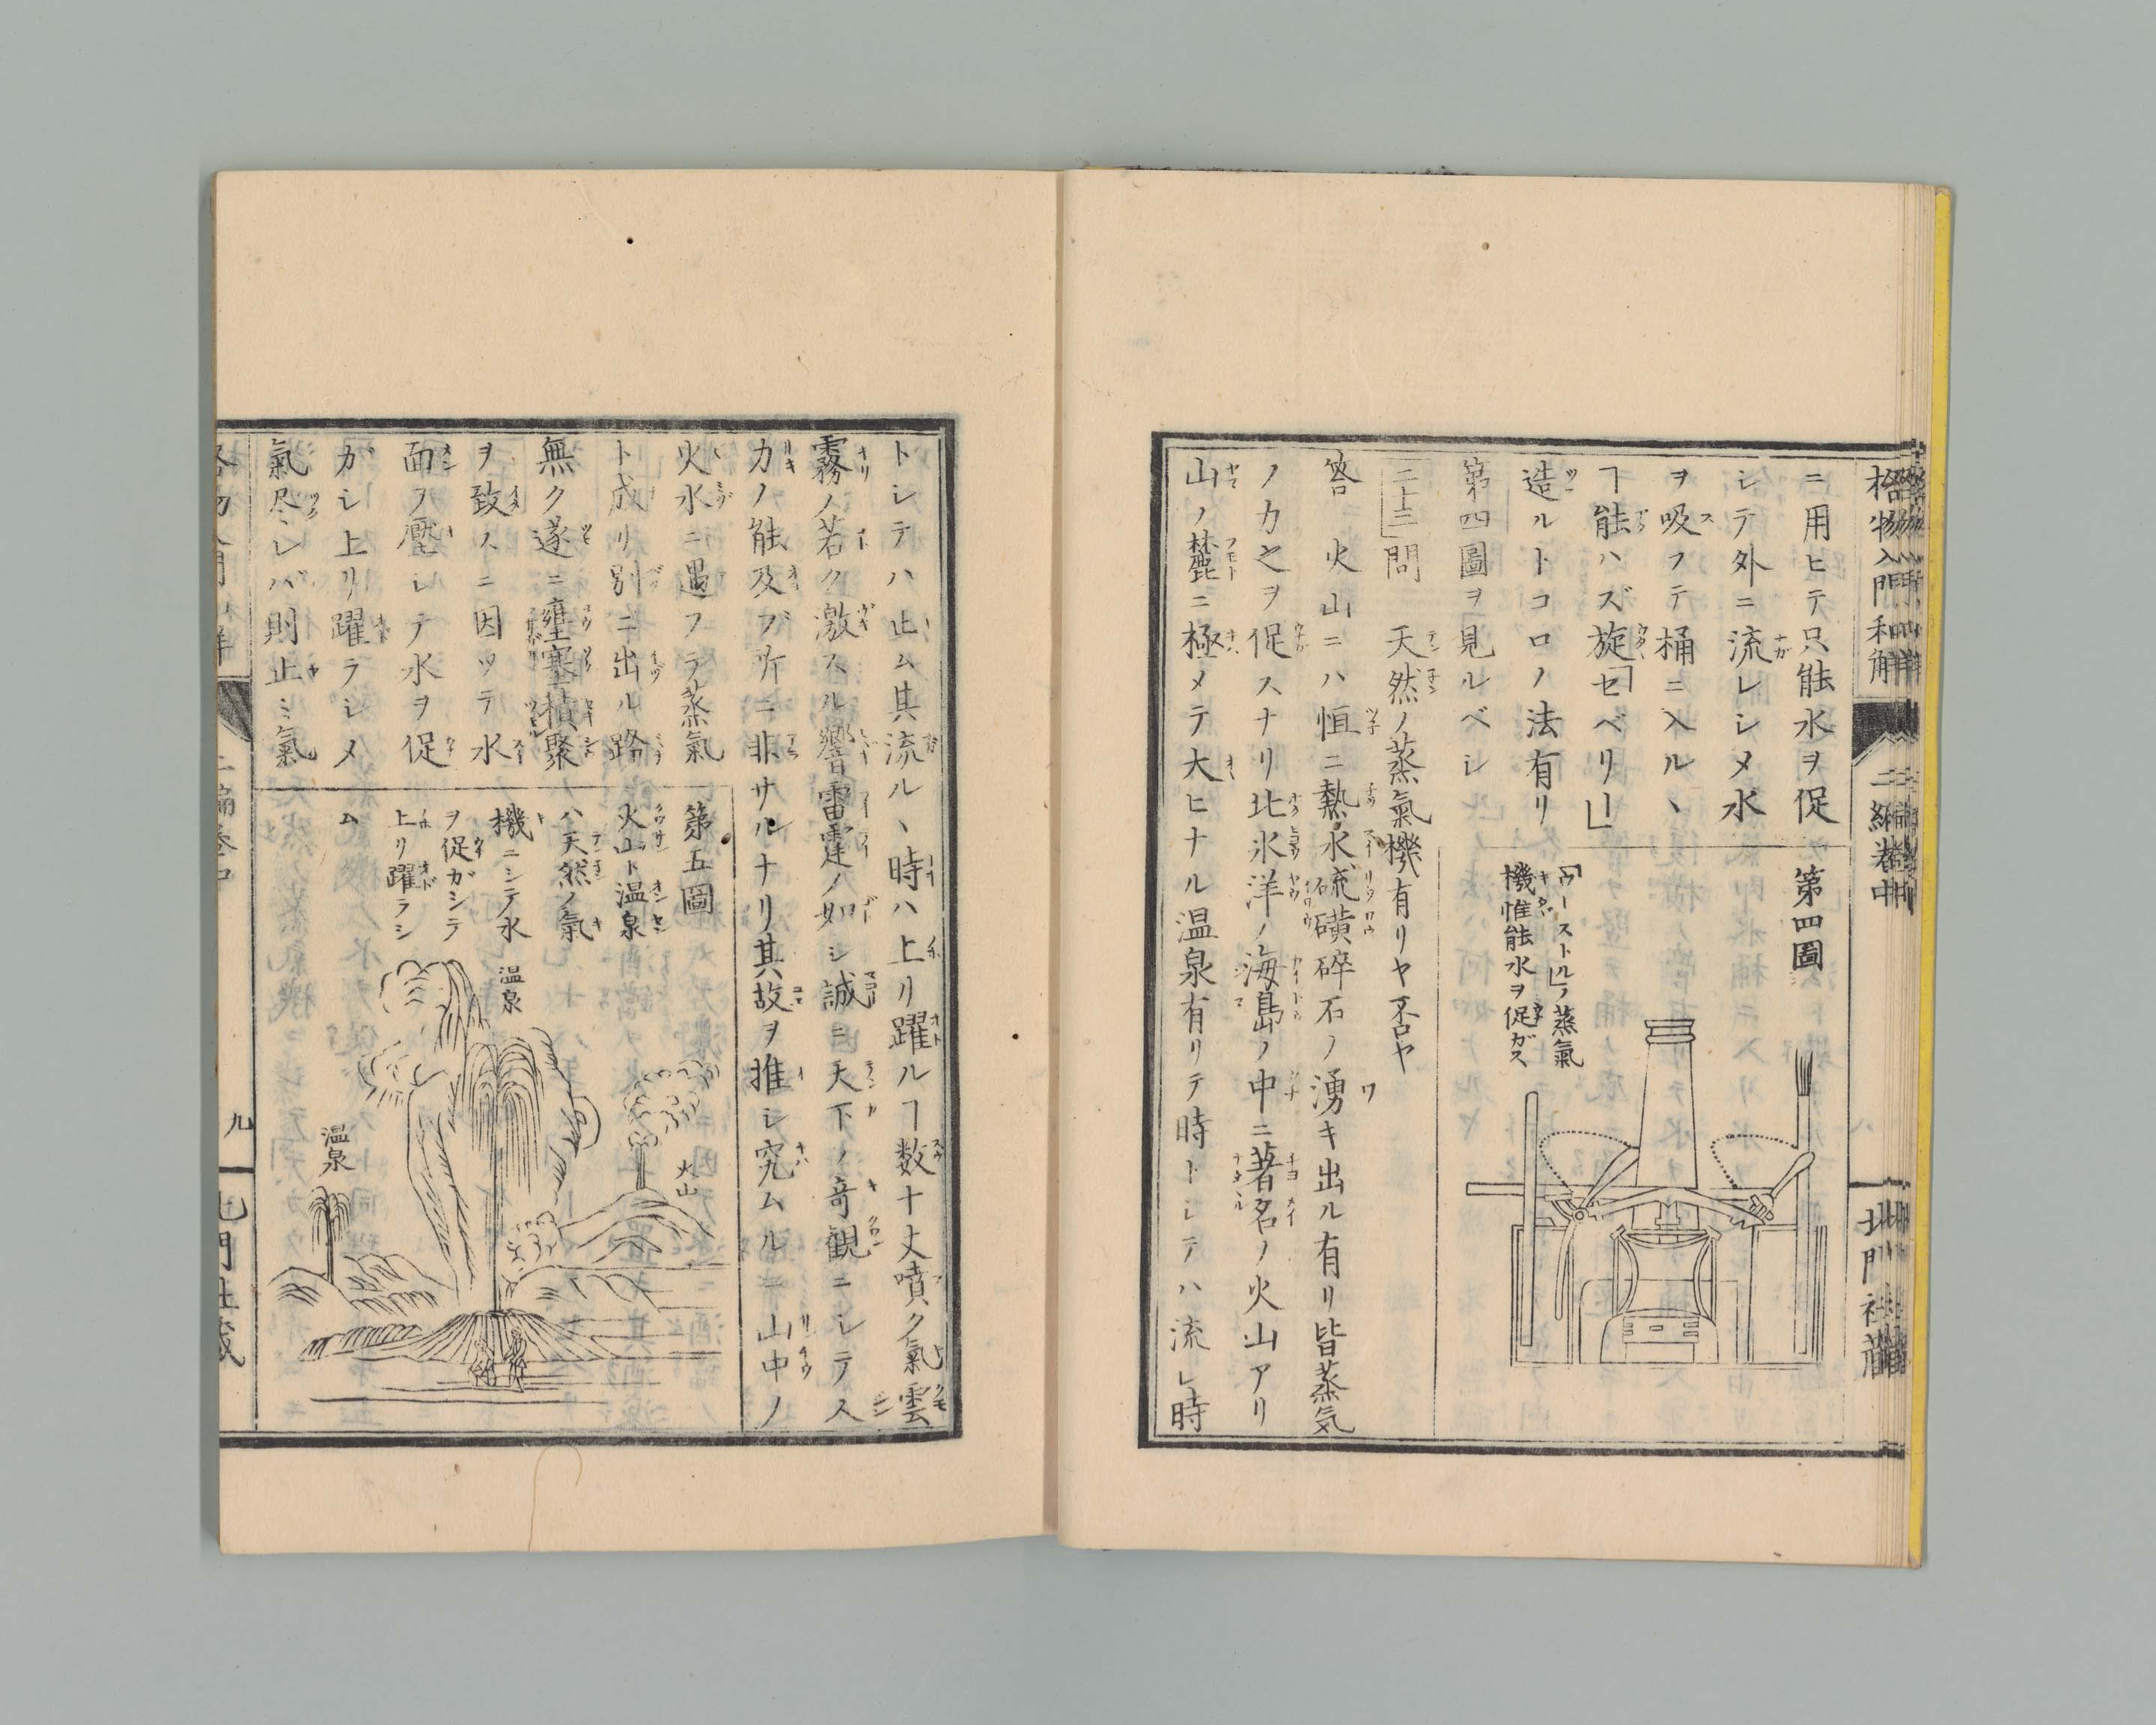 格物入門和解
二編巻中
北門社蔵
ニ用ヒテ只能水ヲ促
シテ外ニ流レシメ水
ヲ吸フテ桶ニ入ルヽ
ヿ能ハズ旋「セベリー」
造ルトコロノ法有リ
第四圖ヲ見ルベシ
第四圖
「ウーストル」ノ蒸氣
機惟能水ヲ促ガス
二十三問 天然ノ蒸氣機有リヤ否ヤ
答 火山ニハ恒ニ熱水硫磺碎石ノ湧キ出ル有リ皆蒸気
ノ力之ヲ促スナリ北氷洋ノ海島ノ中ニ著名ノ火山アリ
山ノ麓ニ極メテ大ヒナル温泉有リテ時トシテハ流レ時
トシテハ止ム其流ルヽ時ハ上リ躍ルヿ数十丈噴ク氣雲
霧ノ若ク激スル響雷霆ノ如シ誠ニ天下ノ竒観ニシテス
力ノ能及ブ所ニ非サルナリ其故ヲ推シ究ムルニ山中ノ
火水ニ遇フテ蒸氣
ト成リ別ニ出ル路
無ク遂ニ壅塞積聚
ヲ致ス、ニ因ツテ水
面ヲ壓シテ水ヲ促
ガシ上リ躍ラシメ
氣尽レバ則止ミ氣
第五圖
火山ト温泉
ハ天然ノ氣
機ニシテ水
ヲ促ガシテ
上リ躍ラシ
ム
温泉
火山
温泉
九